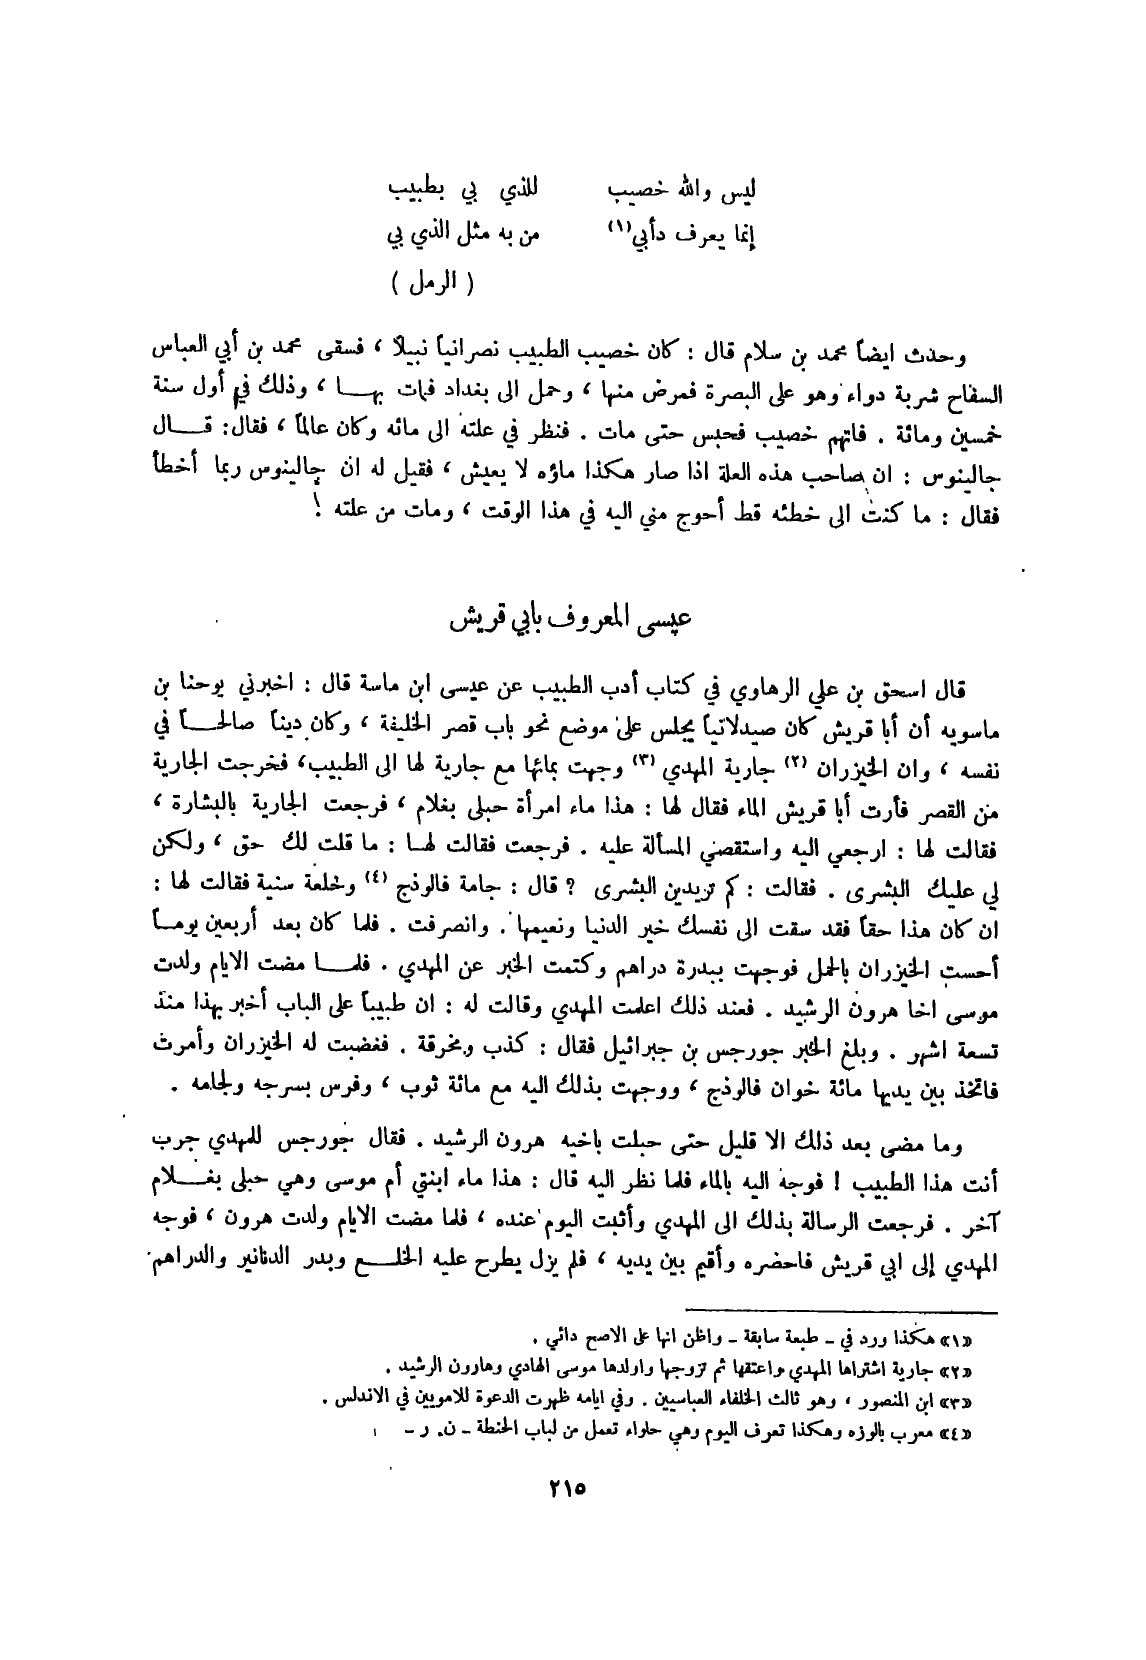 ليس والله خصيب للذي بي بطبيب
إنما يعرف دأبي(١) من به مثل الذي بي
( الرمل )
وحدث ايضاً محمد بن سلام قال : كان خصيب الطبيب نصرانياً نبيلاً ، فسقى محمد بن أبي العباس
السفاح شربة دواء وهو على البصرة فمرض منها ، وحمل الى بغداد فمات بهـا ، وذلك في أول سنة
خمسين ومائة . فاتهم خصيب فحبس حتى مات . فنظر في علته الى مائه وكان عالماً ، فقال: قـــال
جالينوس : ان صاحب هذه العلة اذا صار هكذا ماؤه لا يعيش ، فقيل له ان جالينوس ربما أخطأ
فقال : ما كنت الى خطئه قط أحوج مني اليه في هذا الوقت ، ومات من علته !
عيسى المعروف بابي قريش
قال اسحق بن علي الرهاوي في كتاب أدب الطبيب عن عيسى ابن ماسة قال : اخبرني يوحنا بن
ماسويه أن أبا قريش كان صيدلانياً يجلس على موضع نحو باب قصر الخليفة ، وكان ديناً صالحـــاً في
نفسه ، وان الخيزران (٢) جارية المهدي (٣) وجهت بمائها مع جارية لها الى الطبيب، فخرجت الجارية
من القصر فأرت أبا قريش الماء فقال لها : هذا ماء امرأة حبلى بغلام ، فرجعت الجارية بالبشارة ،
فقالت لها : ارجعي اليه واستقصي المسألة عليه . فرجعت فقالت لهـا : ما قلت لك حق ، ولكن
لي عليك البشرى . فقالت : كم تريدين البشرى ؟ قال : جامة فالوذج (٤) وخلعة سنية فقالت لها :
ان كان هذا حقاً فقد سقت الى نفسك خير الدنيا ونعيمها . وانصرفت . فلما كان بعد أربعين يومـاً
أحست الخيزران بالحمل فوجهت ببدرة دراهم وكتمت الخبر عن المهدي . فلمـــا مضت الايام ولدت
موسى اخا هرون الرشيد . فعند ذلك اعلمت المهدي وقالت له : ان طبيباً على الباب أخبر بهذا منذ
تسعة اشهر . وبلغ الخبر جورجس بن جبرائيل فقال : كذب ومخرقة . فغضبت له الخيزران وأمرت
فاتخذ بين يديها مائة خوان فالوذج ، ووجهت بذلك اليه مع مائة ثوب ، وفرس بسرجه ولجامه .
وما مضى بعد ذلك الا قليل حتى حبلت باخيه هرون الرشيد . فقال جورجس للمهدي جرب
أنت هذا الطبيب ! فوجه اليه بالماء فلما نظر اليه قال : هذا ماء ابنتي أم موسى وهي حبلى بغـــلام
آخر . فرجعت الرسالة بذلك الى المهدي وأثبت اليوم عنده ، فلما مضت الايام ولدت هرون ، فوجه
المهدي إلى ابي قريش فاحضره وأقيم بين يديه ، فلم يزل يطرح عليه الخلـــع وبدر الدنانير والدراهم
«١» هكذا ورد في - طبعة سابقة - واظن انها على الاصح دائي .
«٢» جارية اشتراها المهدي واعتقها ثم تزوجها واولدها موسى الهادي وهارون الرشيد .
«٣» ابن المنصور ، وهو ثالث الخلفاء العباسيين . وفي ايامه ظهرت الدعوة للامويين في الاندلس .
«٤» معرب بالوزه وهكذا تعرف اليوم وهي حلواء تعمل من لباب الحنطة - ن. ر -
٢١٥